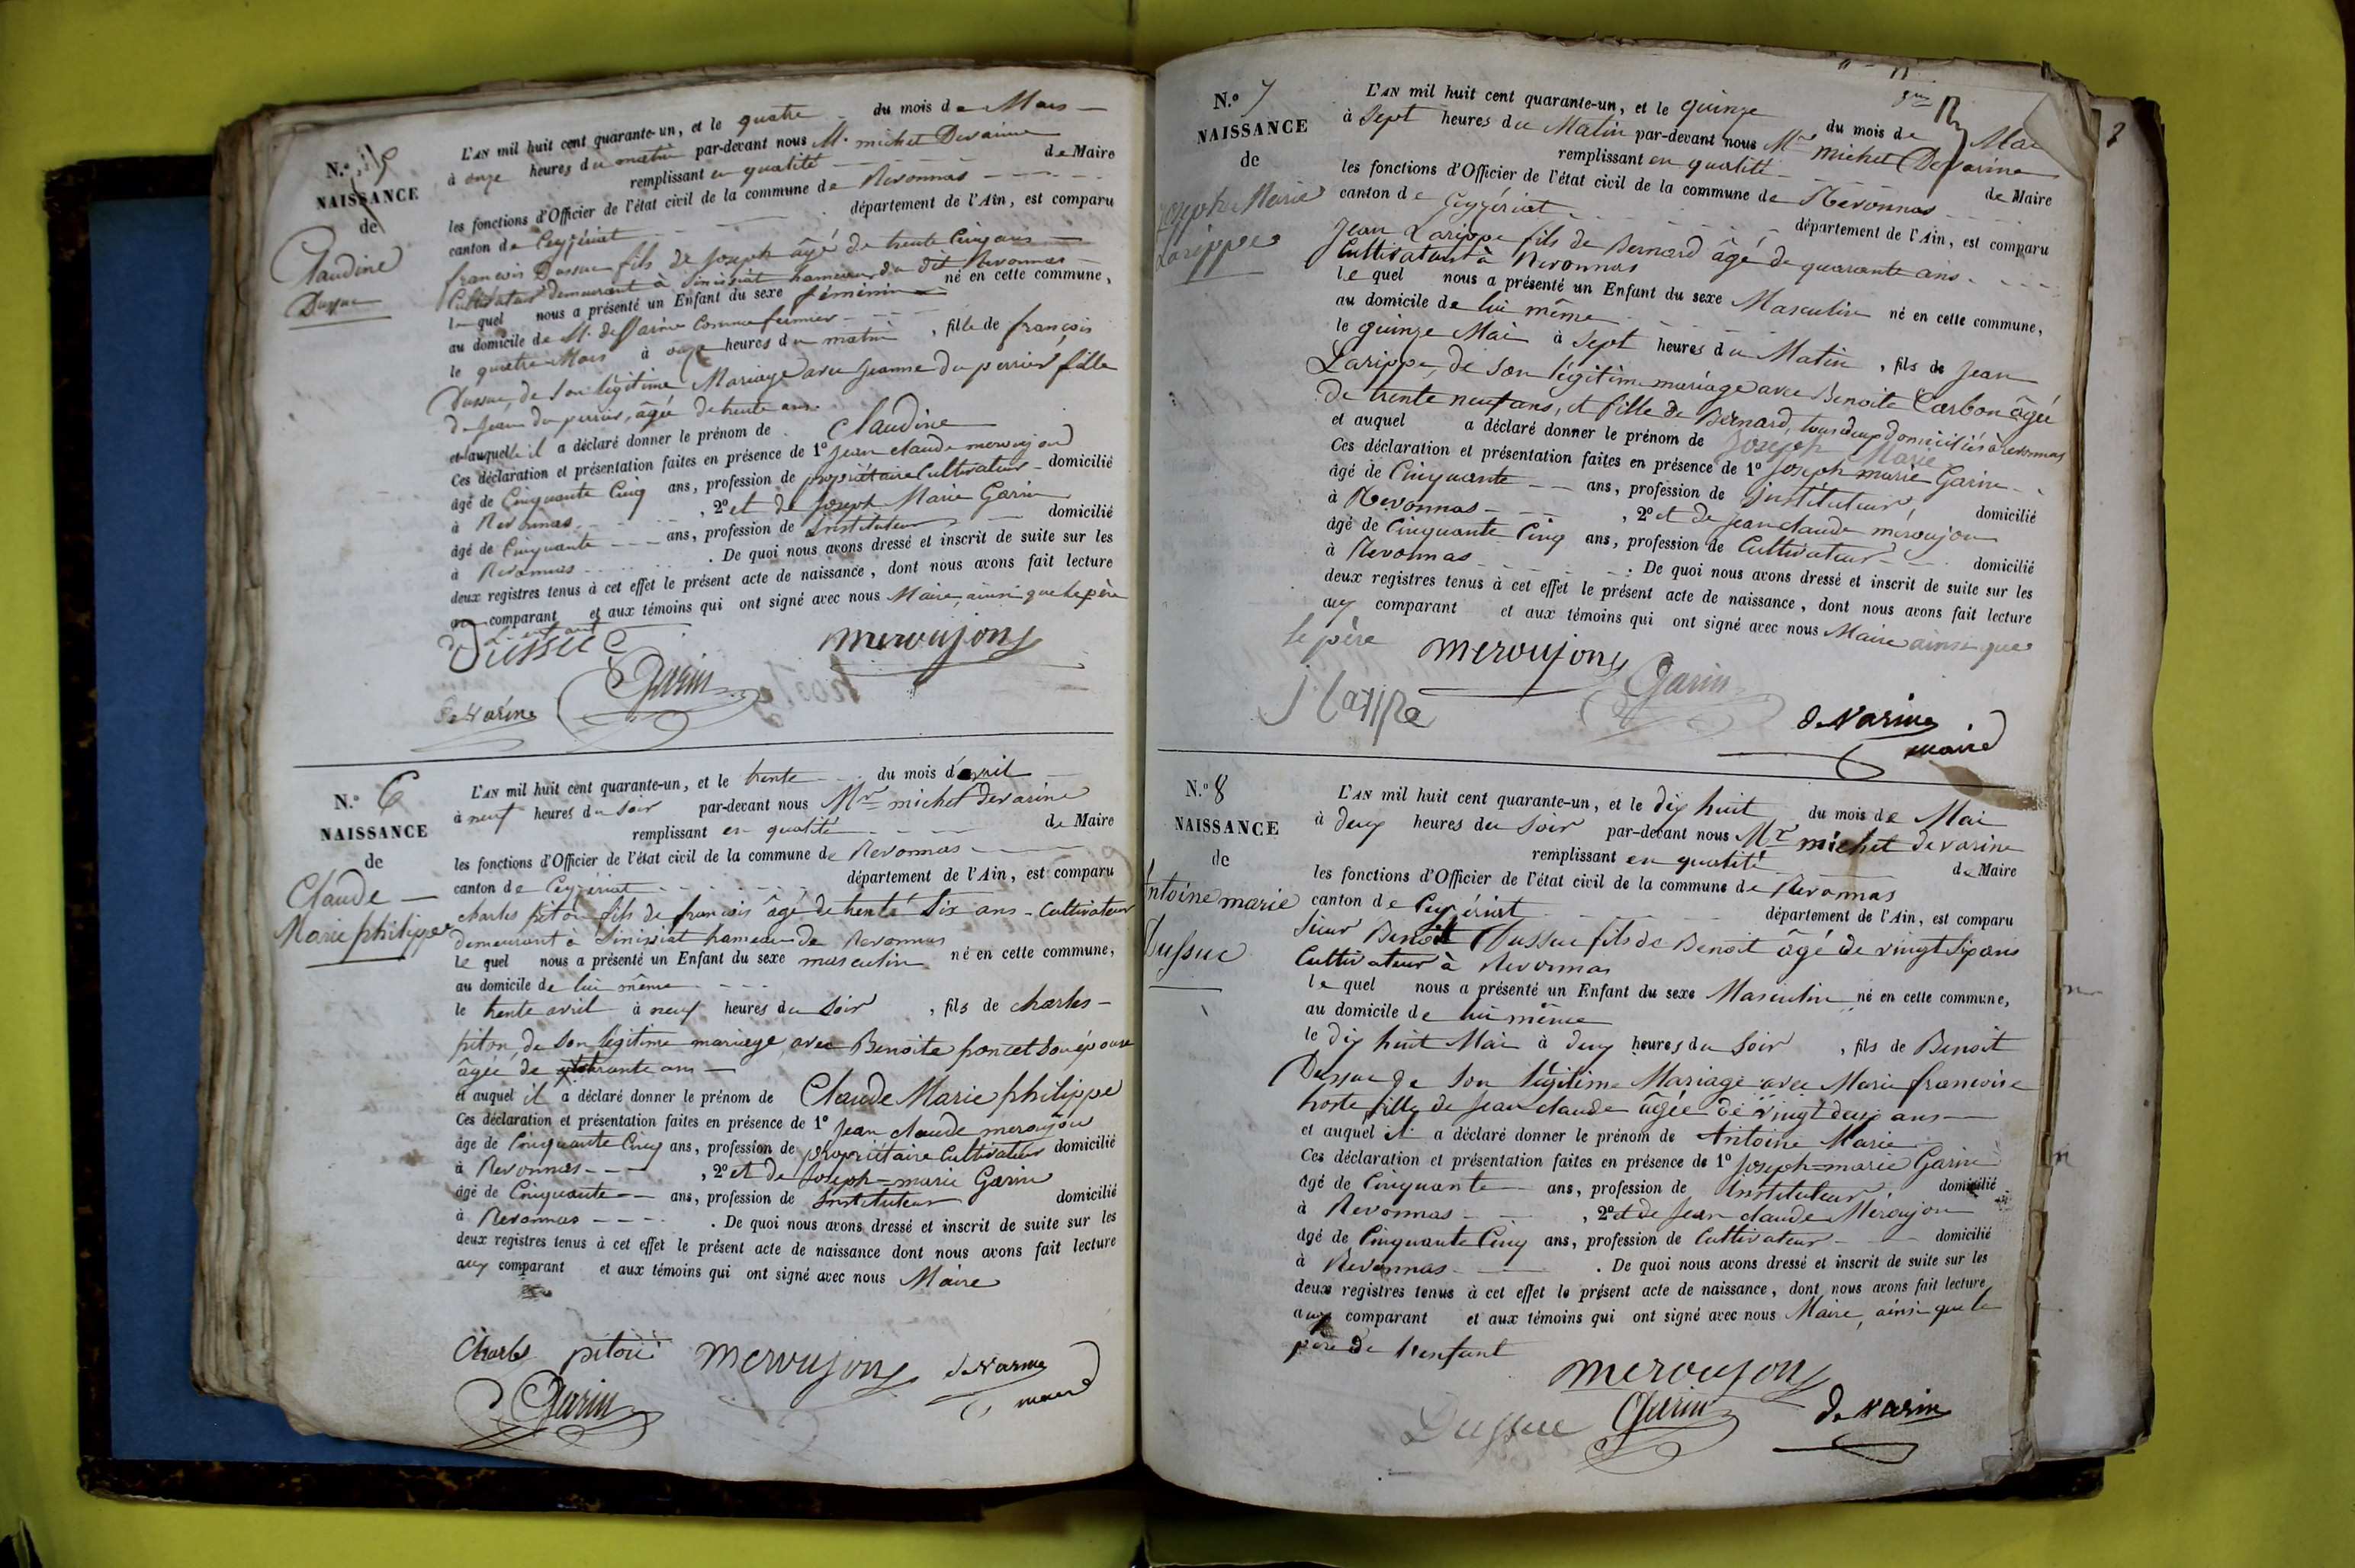 N.º 5
NAISSANCE
de
Claudine
Dussuc
L'AN mil huit cent quarante-un, et le quatre du mois de Mars
à onze heures du matin par-devant nous M. michel Devarine
remplissant en qualité de Maire
les fonctions d'Officier de l'état civil de la commune de Revonnas
canton de Ceyzériat département de l'Ain, est comparu
francois Dussuc fils de Joseph âgé de trente Cinq ans
Cultivateur demeurant à Sinissiat hameau du dit Revonnas
le quel nous a présenté un Enfant du sexe féminin né en cette commune,
au domicile de M. de Varine Comme fermier
le quatre Mars à onze heures du matin, fille de françois
Dussuc, de Son légitime Mariage avec Jeanne du perrier, fille
de Jean du perrier, âgée de trente ans.
et auquelle il a déclaré donner le prénom de Claudine
Ces déclaration et présentation faites en présence de 1º Jean claude meroujon
âgé de Cinquante Cinq ans, profession de propriétaire Cultivateur domicilié
à Revonnas, 2º et de Joseph Marie Garin
âgé de Cinquante ans, profession de Instituteur domicilié
à Revonnas. De quoi nous avons dressé et inscrit de suite sur les
deux registres tenus à cet effet le présent acte de naissance, dont nous avons fait lecture
au comparant et aux témoins qui ont signé avec nous Maire, ainsi que le père
de L'enfant
Dussuc meroujon
Garin
de Varine
N.º 6
NAISSANCE
de
Claude
Marie philippe
L'AN mil huit cent quarante-un, et le trente du mois d'avril
à neuf heures du soir par-devant nous Mr michel devarine
remplissant en qualité de Maire
les fonctions d'Officier de l'état civil de la commune de Revonnas
canton de Ceyzériat département de l'Ain, est comparu
charles piton fils de francois âgé de trente Six ans Cultivateur
Demeurant à Sinissiat hameau de Revonnas
le quel nous a présenté un Enfant du sexe masculin né en cette commune,
au domicile de lui même
le trente avril à neuf heures du Soir, fils de charles
piton, de Son légitime mariage, avec Benoite poncet son épouse
âgée de quarante ans
et auquel il a déclaré donner le prénom de Claude Marie philippe
Ces déclaration et présentation faites en présence de 1º Jean claude meroujon
âgé de Cinquante Cinq ans, profession de propriétaire Cultivateur domicilié
à Revonnas, 2º et de Joseph=marie Garin
âgé de Cinquante ans, profession de Instituteur domicilié
à Revonnas. De quoi nous avons dressé et inscrit de suite sur les
deux registres tenus à cet effet le présent acte de naissance dont nous avons fait lecture
aux comparant et aux témoins qui ont signé avec nous Maire
Charles piton meroujon de Varine
Garin maire
N.º 7
NAISSANCE
de
Joseph Marie
Larippe
L'AN mil huit cent quarante-un, et le quinze du mois de Mai
à Sept heures du Matin par-devant nous Mr michel Devarine
remplissant en qualité de Maire
les fonctions d'Officier de l'état civil de la commune de Revonnas
canton de Ceyzériat département de l'Ain, est comparu
Jean Larippe fils de Bernard âgé de quarante ans
Cultivateur à Revonnas
le quel nous a présenté un Enfant du sexe Masculin né en cette commune,
au domicile de lui même
le quinze Mai à Sept heures du Matin, fils de Jean
Larippe, de Son légitime mariage avec Benoite Carbon âgée
de trente neuf ans, et fille de Bernard, tous deux domiciliés à revonnas
et auquel a déclaré donner le prénom de Joseph Marie
Ces déclaration et présentation faites en présence de 1º Joseph marie Garin
âgé de Cinquante ans, profession de Instituteur, domicilié
à Revonnas, 2º et de Jean claude méroujon
âgé de Cinquante Cinq ans, profession de Cultivateur domicilié
à Revonnas. De quoi nous avons dressé et inscrit de suite sur les
deux registres tenus à cet effet le présent acte de naissance, dont nous avons fait lecture
aux comparant et aux témoins qui ont signé avec nous Maire ainsi que
le père meroujon Garin
J larippe de Varine
maire
N.º 8
NAISSANCE
de
Antoine marie
Dussuc
L'AN mil huit cent quarante-un, et le dix huit du mois de Mai
à deux heures du Soir par-devant nous Mr michel devarine
remplissant en qualité de Maire
les fonctions d'Officier de l'état civil de la commune de Revonnas
canton de Ceyzériat département de l'Ain, est comparu
Sieur Benoit Dussuc fils de Benoit âgé de vingt Six ans
Cultivateur à Revonnas
le quel nous a présenté un Enfant du sexe Masculin né en cette commune,
au domicile de lui même
le dix huit Mai à deux heures du Soir, fils de Benoit
Dussuc de Son légitime Mariage avec Marie francoise
hoste fille de Jean claude âgée de vingt deux ans
et auquel il a déclaré donner le prénom de Antoine Marie
Ces déclaration et présentation faites en présence de 1º Joseph=marie Garin
âgé de Cinquante ans, profession de Instituteur domicilié
à Revonnas, 2º et de Jean claude Méroujon
âgé de Cinquante Cinq ans, profession de Cultivateur domicilié
à Revonnas. De quoi nous avons dressé et inscrit de suite sur les
deux registres tenus à cet effet le présent acte de naissance, dont nous avons fait lecture
aux comparant et aux témoins qui ont signé avec nous Maire, ainsi que le
père de l'enfant
meroujon
Dussuc Garin de Varine